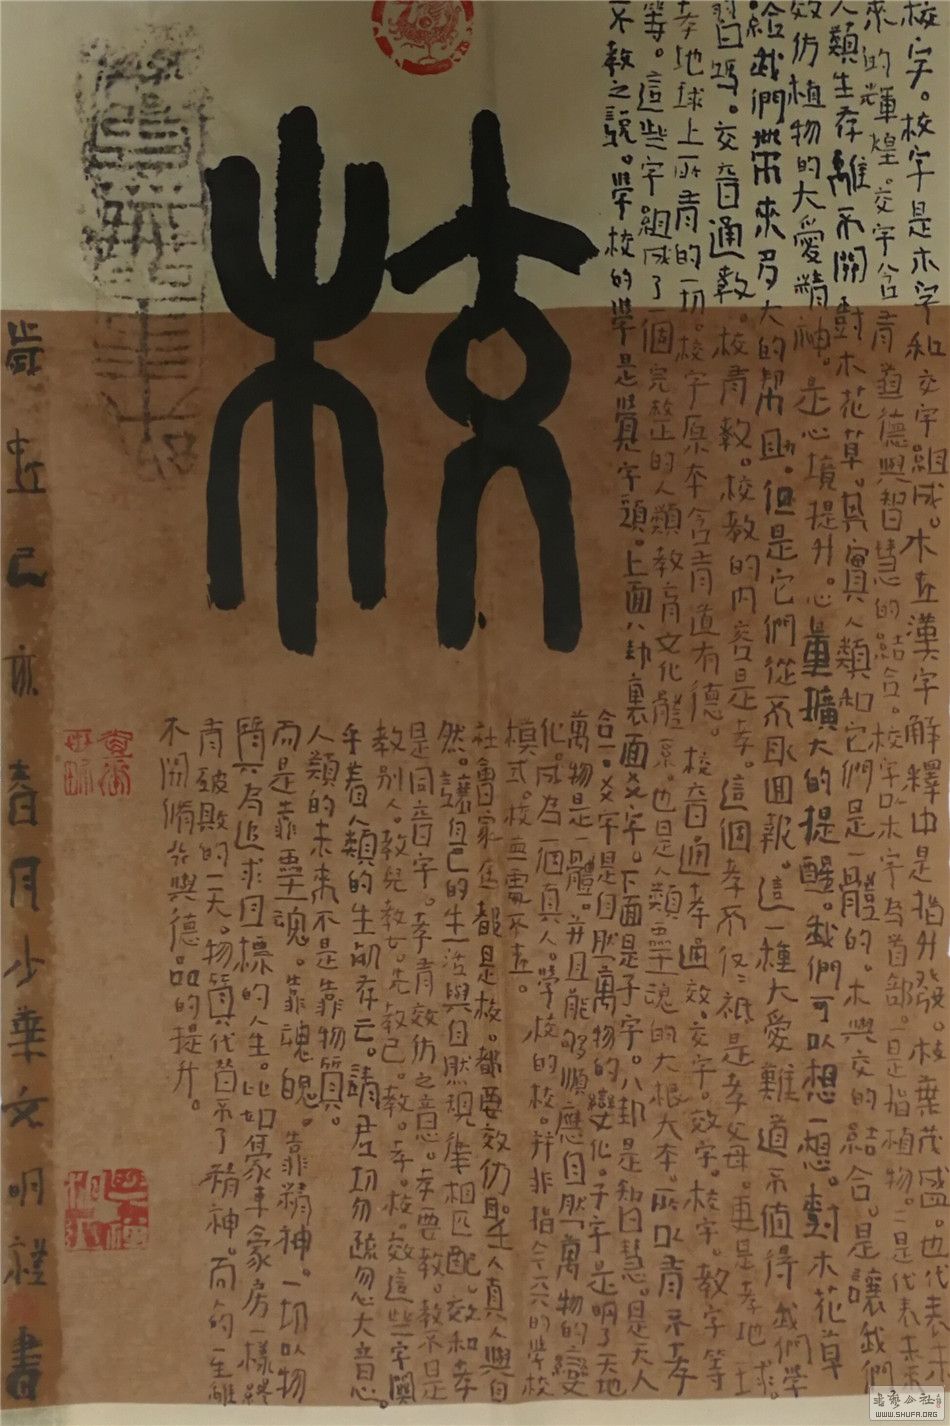 校字。校字是木字和交字組成。木在漢字解釋中是指升發。枝葉茂盛。也代表未
來的輝煌。交字含有道德與智慧的結合。校字以木字為首部。一是指植物。二是代表未來
人類生存離不開對木花草。其實人類和它們是一體的。木與交的結合。是讓我們
效仿植物的大愛精神。是心境提升。心量擴大的提醒。我們可以想一想。對木花草
給我們帶來多大的幫助。但是它們從不取回報。這一種大愛難道不值得我們學
習嗎。交音通教。校有教。校教的內容是孝。這個孝不仅仅祇是孝父母。更是孝地球。
孝地球上所有的一切。校字原本含有道有德。校音通孝通效。交字。效字。校字。教字等
等。這些字。組成了一個完整的人類教育文化體系。也是人類靈魂的大根大本。所以有不孝
不教之說。學校的學是覺字頭。上面八卦裏面爻字。下面是子字。八卦是知日慧。是天人
合一。爻字是自然萬物的變化。子字是明了天地
萬物是一體。并且能够順應自然萬物的變
化。成為一個真人。學校的校。并非指今天的學校
模式。校無處不在。
社會家庭都是校。都要效仿聖人真人與自
然。讓自己的生活與自然規律相匹配。效和孝
是同音字。孝有效仿之意。孝要教。教不是
教別人。教兒教女。先教己。教。孝。校。效這些字關
乎着人類的生死存亡。請君切勿疏忽大意。
人類的未來不是靠物質。
而是靠靈魂。靠魂魄。靠精神。一切以物
質為追求目標的人生。比如豪車豪房一樣終
有破敗的一天。物質代替不了精神。而一生離
不開脩行與德品的提升。
校
歲在己亥春月少華文明禮書
WWW.SHUFA.ORG